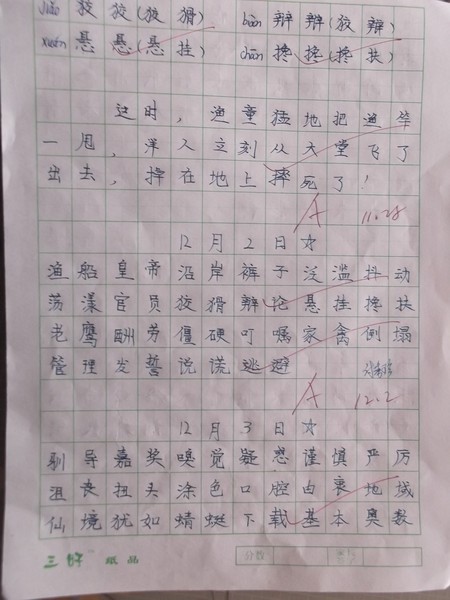 jiǎo 狡 狡(狡猾) biàn 辩 辩(狡辩)
xuán 悬 悬(悬挂) chān 搀 搀(搀扶)
这时,渔童猛地把渔竿
一甩,洋人立刻从大堂飞了
出去,摔在地上摔死了!
A 11.28
12月2日☆
渔船皇帝沿岸裤子泛滥抖动
荡漾官员狡猾辩论悬挂搀扶
老鹰酬劳僵硬叮嘱家禽倒塌
管理发誓说谎逃避
A 12.2
12月3日☆
驯导嘉奖嗅觉疑惑谨慎严厉
沮丧扭头涂色口腔由衷地域
仙境犹如蜻蜓下载基本奥数
三好 纸品 分数